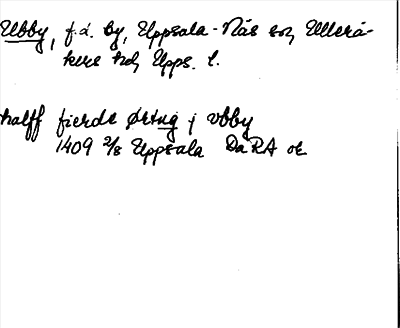 Ubby, f.d. by, Uppsala-Näs sn, Ullerå-
kers hd, Upps. l.
halff fierde ørtug j vbby
1409 2/8 Uppsala DaRA or